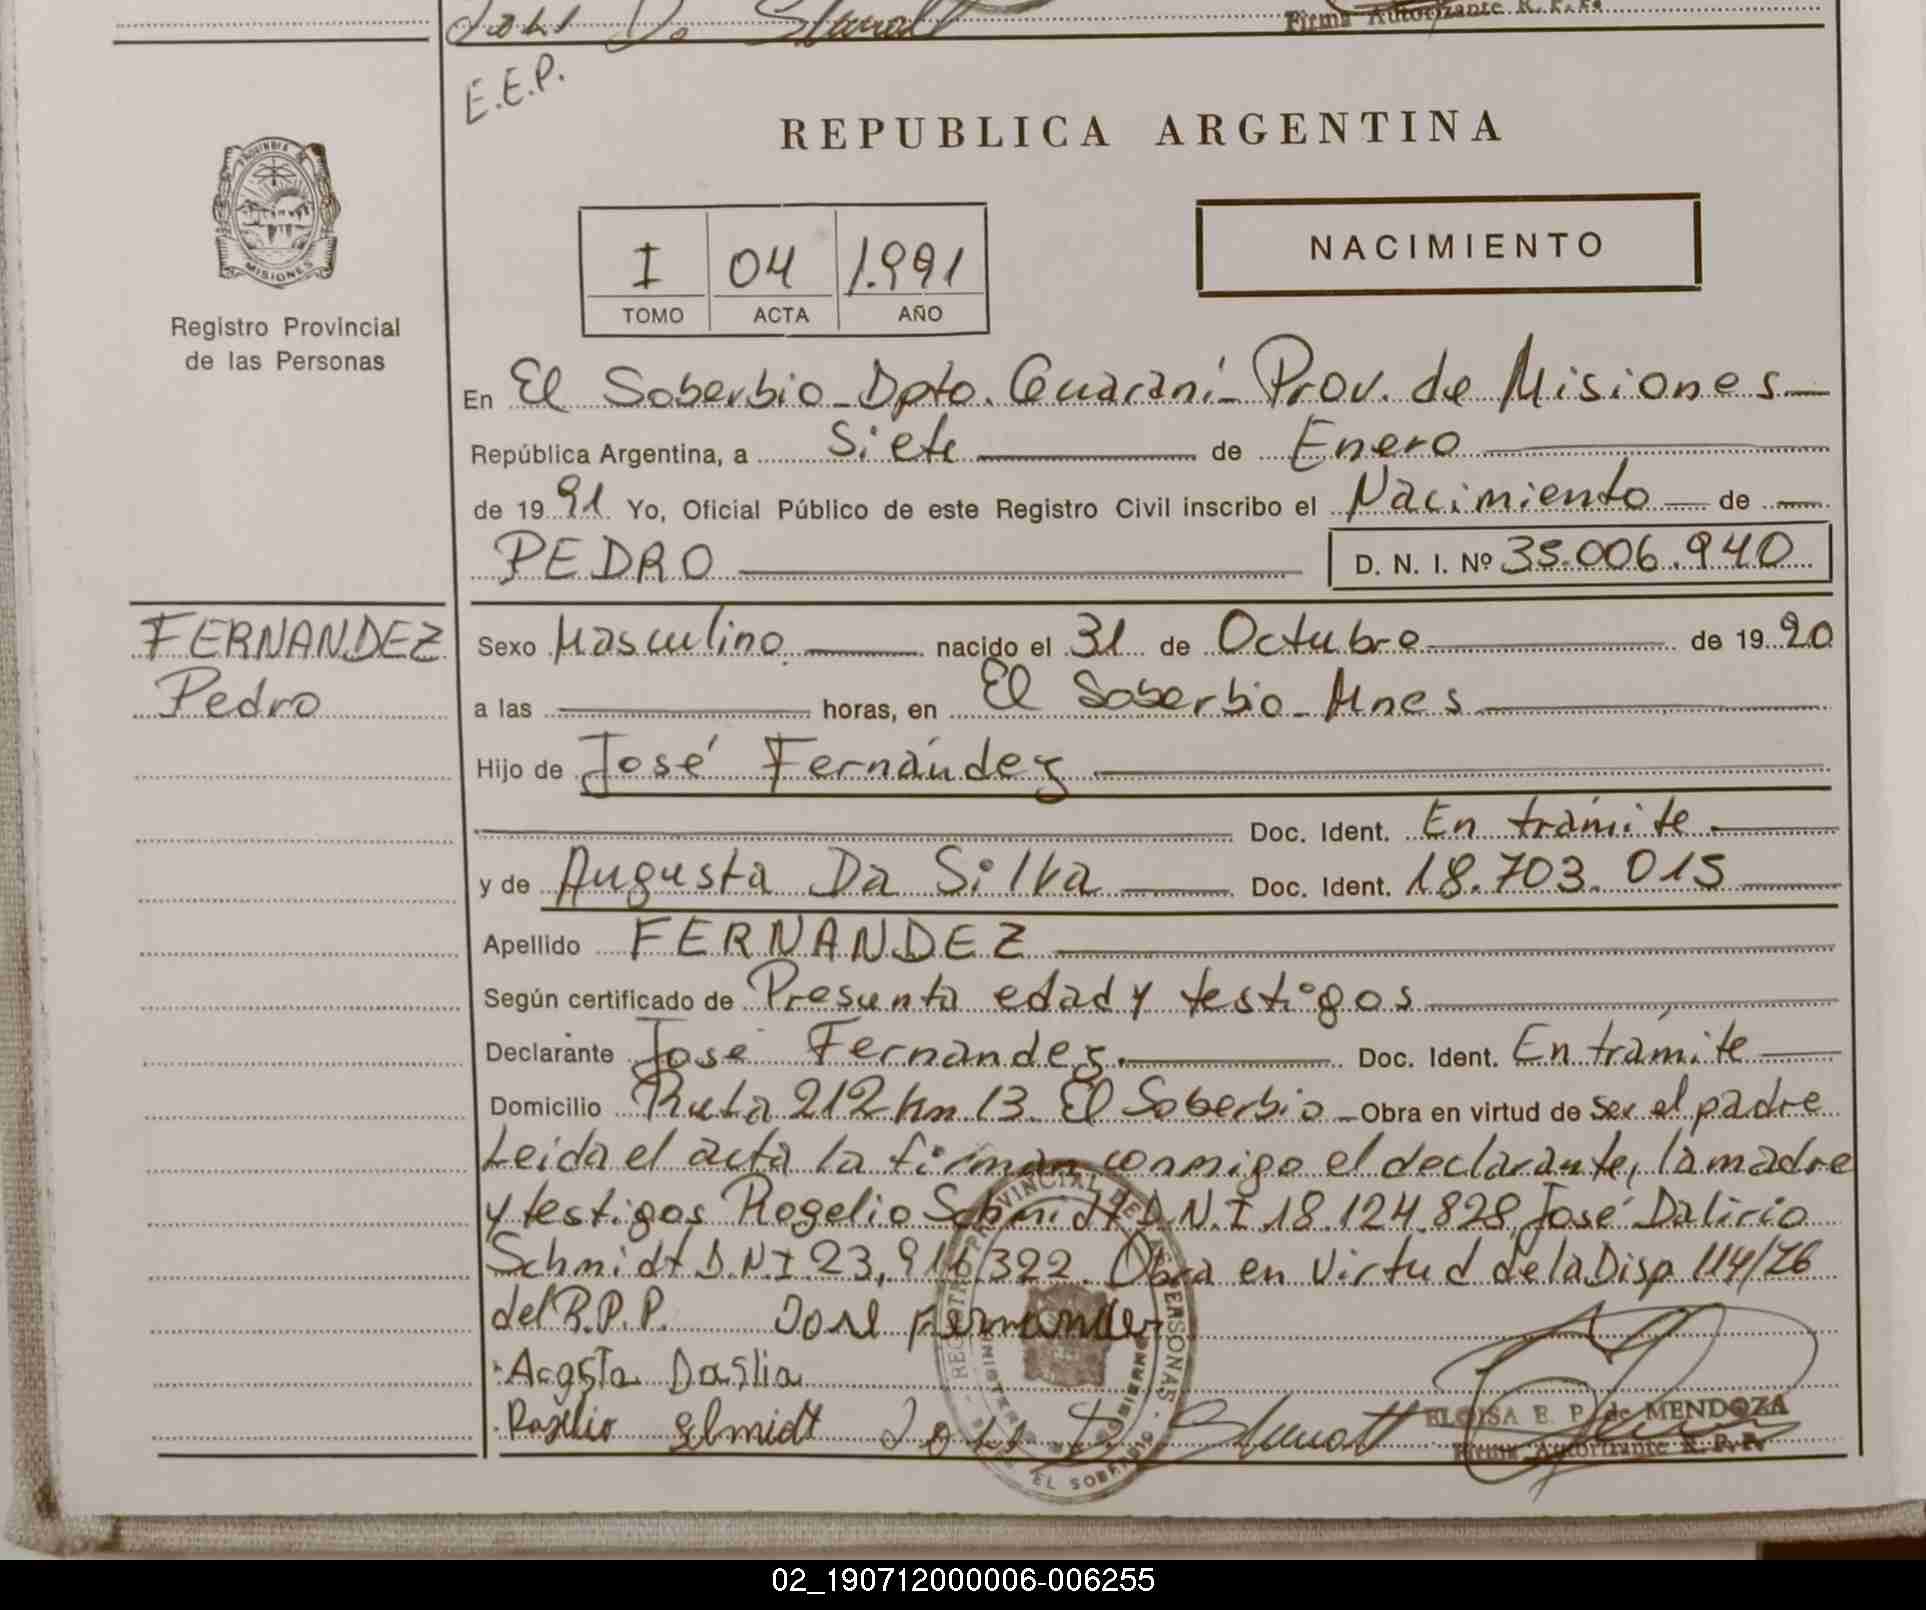 José D. Shmidt
Firma Autorizante R.P.P.
E.E.P.
REPUBLICA ARGENTINA
PROVINCIA DE
MISIONES
Registro Provincial
de las Personas
I 04 1.991
TOMO ACTA AÑO
NACIMIENTO
En El Soberbio - Dpto. Guaraní - Prov. de Misiones
República Argentina, a Siete de Enero
de 1991 Yo, Oficial Público de este Registro Civil inscribo el Nacimiento de
PEDRO D. N. I. Nº 35.006.940
FERNANDEZ
Pedro
Sexo Masculino nacido el 31 de Octubre de 1990
a las horas, en El Soberbio - Mnes
Hijo de José Fernández
Doc. Ident. En trámite
y de Augusta Da Silva Doc. Ident. 18.703.015
Apellido FERNANDEZ
Según certificado de Presunta edad y testigos
Declarante José Fernández. Doc. Ident. En trámite
Domicilio Ruta 212 km 13. El Soberbio - Obra en virtud de ser el padre
Leida el acta la firman conmigo el declarante, la madre
y testigos Rogelio Schmidt D.N.I 18.124.828, José Dalirio
Schmidt D.N.I 23,916,322. Obra en virtud de la Disp 114/76
del R.P.P. José Fernandez
Acgsta Dasilia
Rogelio Shmidt José D. Shmidt
ELOISA E. P. de MENDOZA
Firma Autorizante R.P.P.
REGISTRO PROVINCIAL DE LAS PERSONAS
MINISTERIO GOBIERNO
EL SOBERBIO
02_190712000006-006255